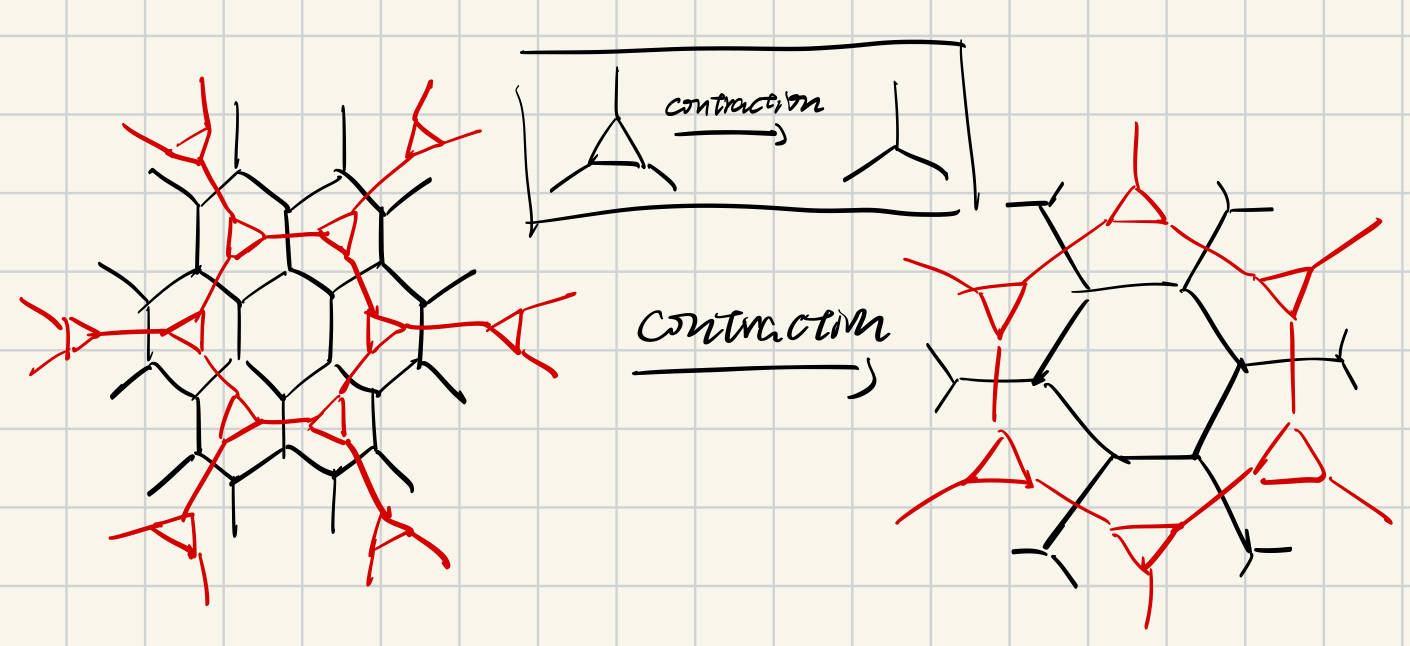 contraction
Contraction